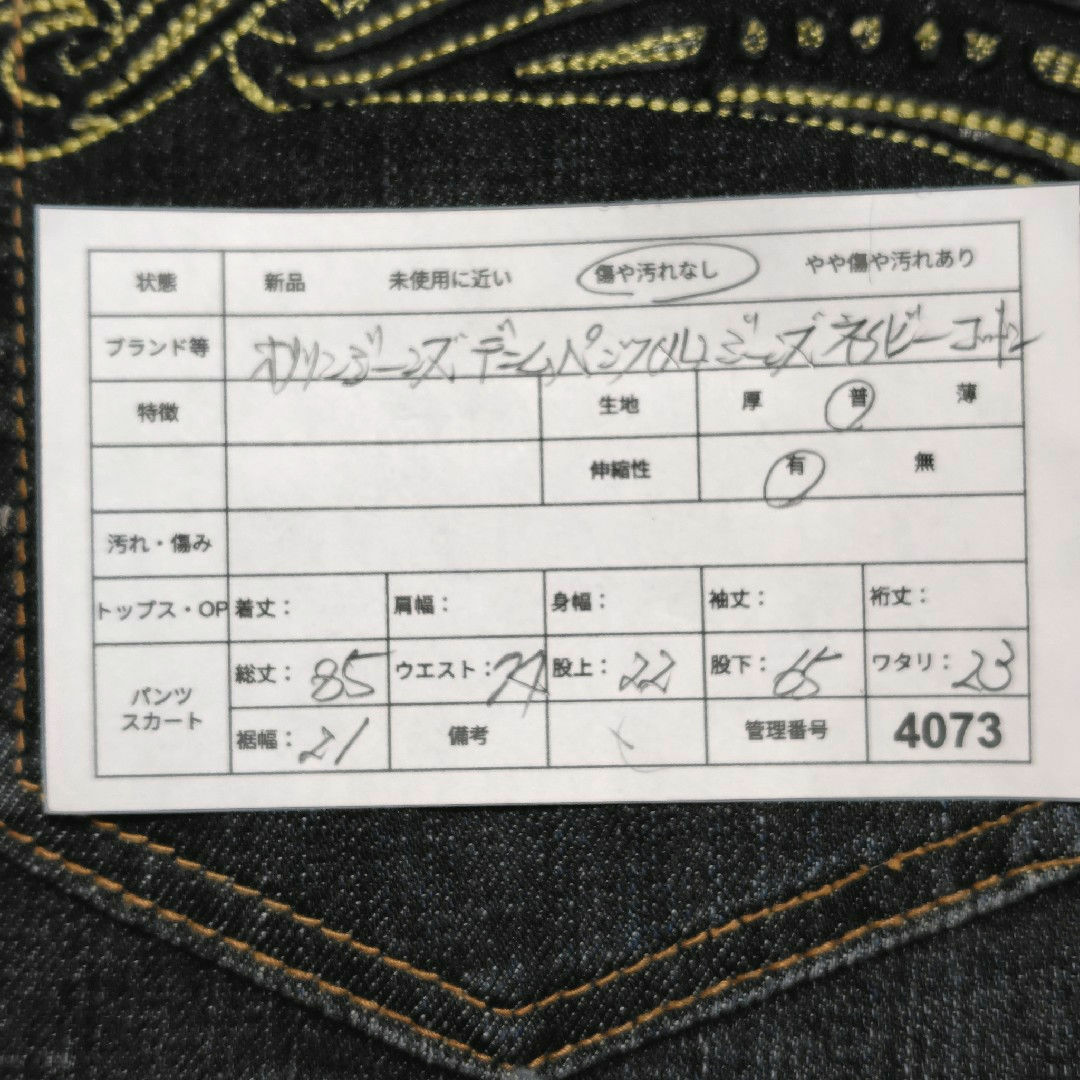 状態 新品 未使用に近い 傷や汚れなし やや傷や汚れあり
ブランド等 デニムパンツ ジーンズ ネイビー コットン
特徴 生地 厚 普 薄
伸縮性 有 無
汚れ・傷み
トップス・OP 着丈: 肩幅: 身幅: 袖丈: 裄丈:
パンツ スカート 総丈: 85 ウエスト: 股上: 22 股下: 65 ワタリ: 23
裾幅: 21 備考 管理番号 4073